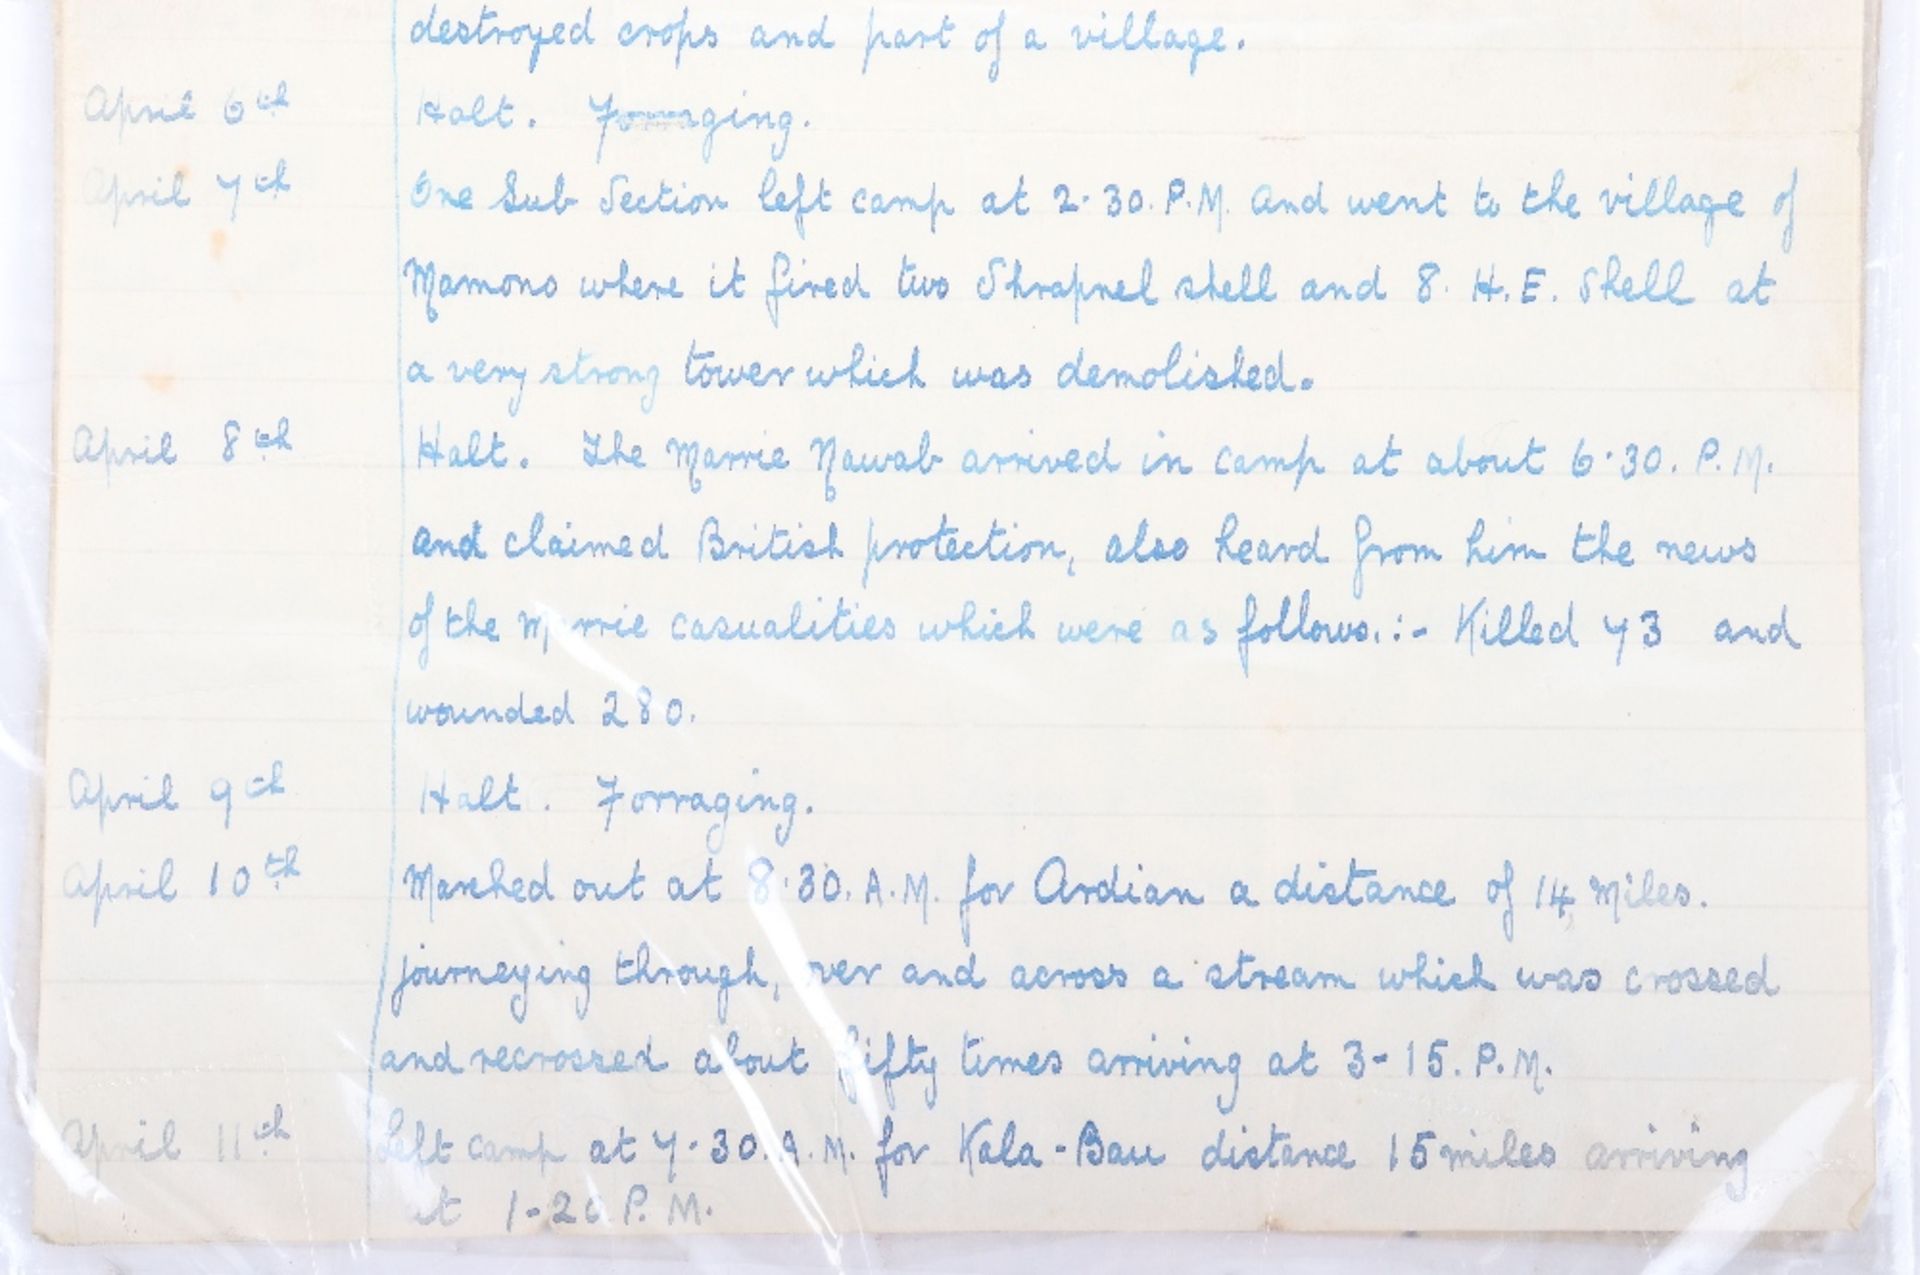 destroyed crops and part of a village.
April 6th Halt. Forraging.
April 7th One Sub Section left camp at 2.30.P.M. and went to the village of
Mamono where it fired two Shrapnel shell and 8. H.E. Shell at
a very strong tower which was demolished.
April 8th Halt. The Marrie Nawab arrived in camp at about 6.30. P.M.
and claimed British protection, also heard from him the news
of the Marrie casualities which were as follows.:- Killed 73 and
wounded 280.
April 9th Halt. Forraging.
April 10th Marched out at 8.30. A.M. for Ardian a distance of 14 miles.
journeying through, over and across a stream which was crossed
and recrossed about fifty times arriving at 3-15. P.M.
April 11th Left camp at 7-30.A.M. for Kala-Bau distance 15 miles arriving
at 1-20 P.M.